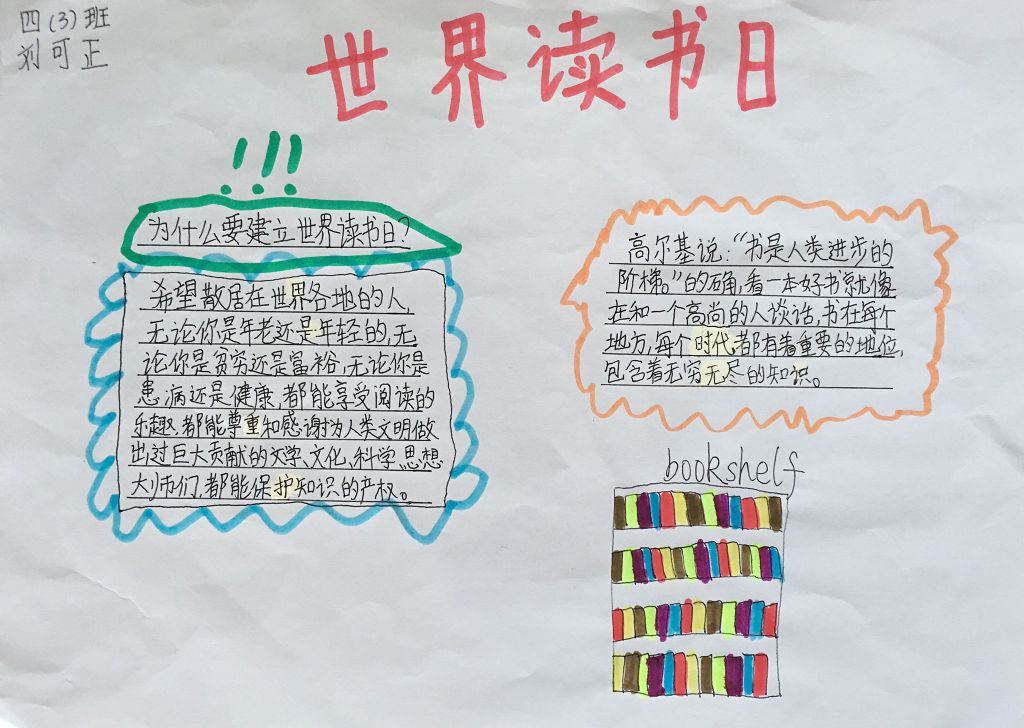 四(3)班
刘可正
世界读书日
!!!
为什么要建立世界读书日?
希望散居在世界各地的人,
无论你是年老还是年轻的,无
论你是贫穷还是富裕,无论你是
患病还是健康,都能享受阅读的
乐趣,都能尊重和感谢为人类文明做
出过巨大贡献的文学、文化、科学思想
大师们,都能保护知识的产权。
高尔基说:“书是人类进步的
阶梯。”的确,看一本好书就像
在和一个高尚的人谈话,书在每个
地方,每个时代,都有着重要的地位,
包含着无穷无尽的知识。
bookshelf